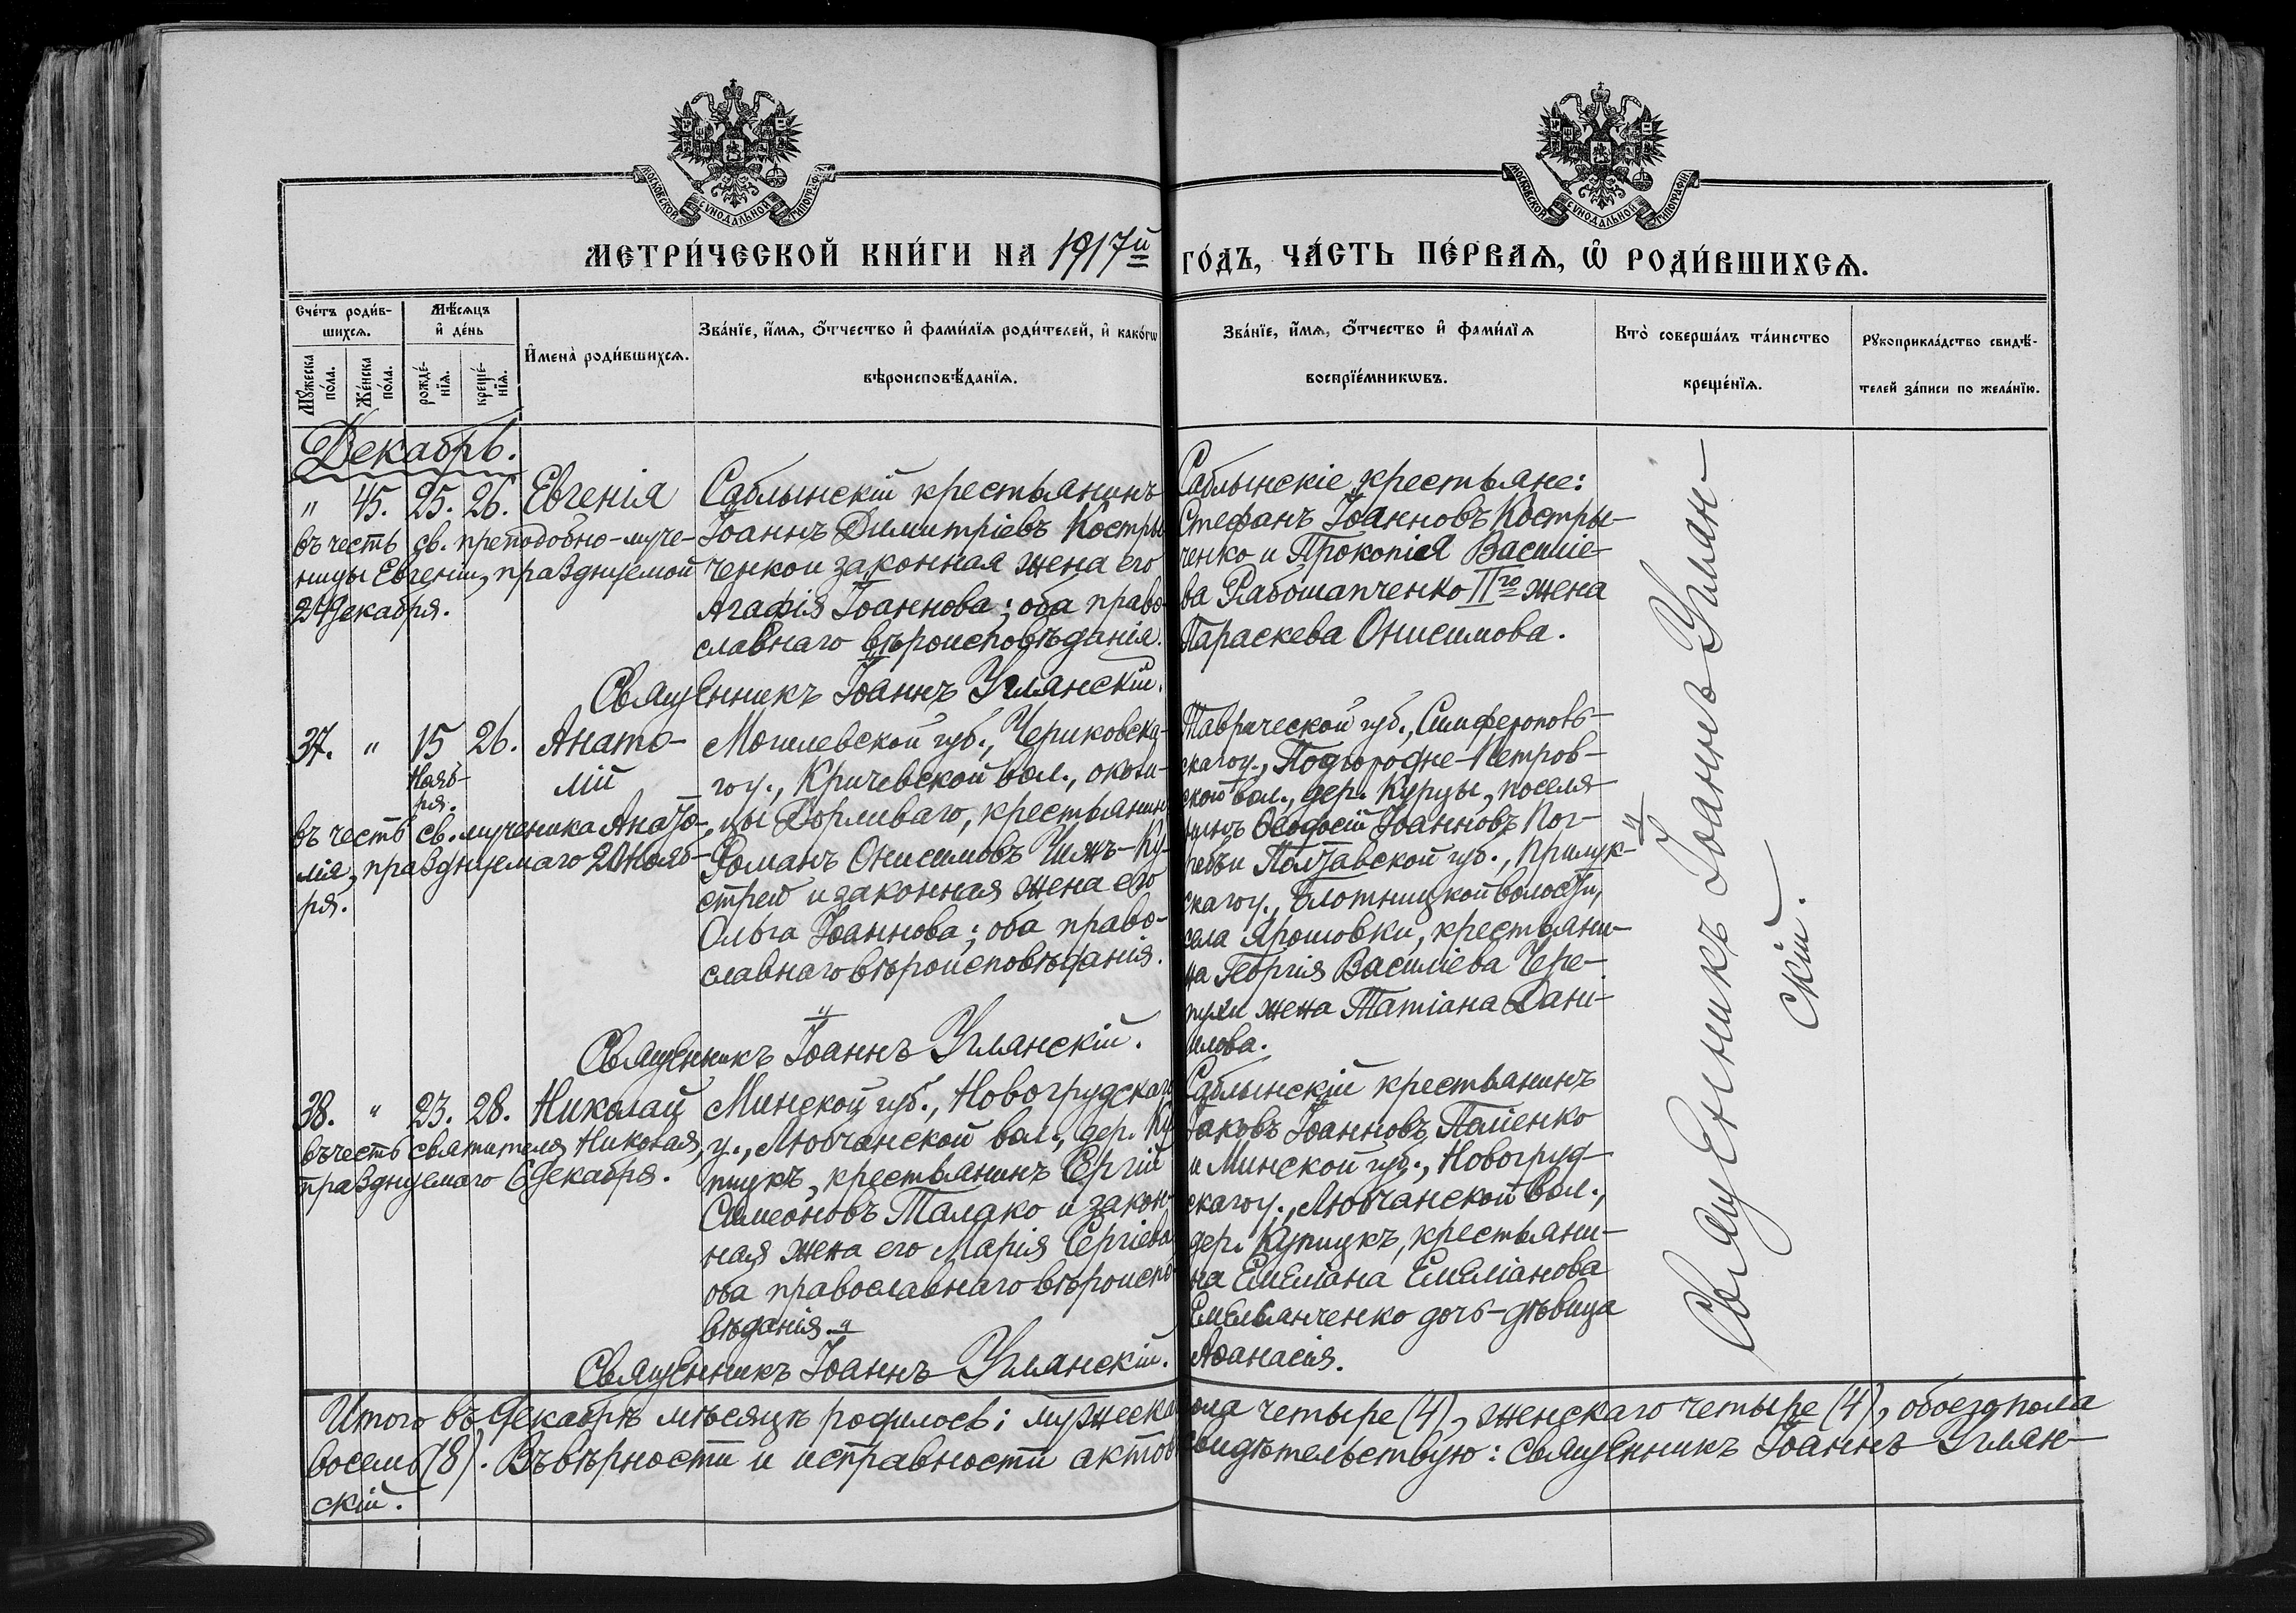 МОСКОВСКОЙ СѴНОДАЛЬНОЙ ТИПОГРАФІИ
МОСКОВСКОЙ СѴНОДАЛЬНОЙ ТИПОГРАФІИ
МЕТРИ́ЧЕСКОЙ КНИ́ГИ НА 1917й ГО́ДЪ, ЧА́СТЬ ПЕ́РВАѦ, Ѡ҆ РОДИ́ВШИХСѦ.
Сче́тъ роди́в-
шихсѧ.
Мꙋ́жеска по́ла.
Же́нска по́ла.
Мѣ́сѧцъ
и҆ де́нь
рожде́-
нїѧ.
креще́-
нїѧ.
И҆мена̀ роди́вшихсѧ.
Зва́нїе, и҆́мѧ, ѻ҆́тчество и҆ фами́лїѧ роди́телей, и҆ како́гѡ
вѣроисповѣ́данїѧ.
Зва́нїе, и҆́мѧ, ѻ҆́тчество и҆ фами́лїѧ
воспрїе́мникѡвъ.
Кто̀ соверша́лъ та́инство
креще́нїѧ.
Рꙋкоприкла́дство свидѣ́-
телей за́писи по жела́нїю.
Декабрь.
" 45. 25. 26. Евгенія
въ честь св. преподобно-муче-
ницы Евгеніи, празднуемой
24 декабря.
Саблынскій крестьянинъ
Іоаннъ Димитріевъ Костры-
ченко и законная жена его
Агафія Іоаннова; оба право-
славнаго вѣроисповѣданія.
Священникъ Іоаннъ Уманскій.
Саблынскіе крестьяне:
Стефанъ Іоанновъ Костры-
ченко и Прокопія Василіе-
ва Рабошапченко IIго жена
Параскева Онисимова.
37. " 15 Нояб-
ря. 26. Анато-
лій
въ честь св. мученика Анато-
лія, празднуемаго 20 Нояб-
ря.
Могилевской губ., Чериковска-
го у., Кричевской вол., околи-
цы Дорливаго, крестьянинъ
Романъ Онисимовъ Чижъ-Ку-
стрей и законная жена его
Ольга Іоаннова; оба право-
славнаго вѣроисповѣданія.
Священникъ Іоаннъ Уманскій.
Таврической губ., Симферополь-
скаго у., Подгородне-Петров-
ской вол., дер. Курцы, поселя-
нинъ Ѳеодосій Іоанновъ Пог-
ребъ и Полтавской губ., Прилук-
скаго у., Блотницкой волости,
села Ярошовки, крестьяни-
на Георгія Василіева Чере-
пухи жена Татіана Дани-
илова.
38. " 23. 28. Николай
въ честь святителя Николая,
празднуемаго 6 декабря.
Минской губ., Новогрудскаго
у., Любчанской вол., дер. Ку-
пицкъ, крестьянинъ Сергій
Симеоновъ Талако и закон-
ная жена его Марія Сергіева
оба православнаго вѣроиспо-
вѣданія.
Священникъ Іоаннъ Уманскій.
Саблынскій крестьянинъ
Іаковъ Іоанновъ Паліенко
и Минской губ., Новогруд-
скаго у., Любчанской вол.,
дер. Купицкъ, крестьяни-
на Емеліана Емеліанова
Емельянченко дочь-дѣвица
Аѳанасія.
Священникъ Іоаннъ Уман-
скій.
Итого въ Декабрѣ мѣсяцѣ родилось: мужеска пола четыре (4), женскаго четыре (4), обоего пола
восемь (8). Въ вѣрности и исправности актовъ свидѣтельствую: священникъ Іоаннъ Уман-
скій.